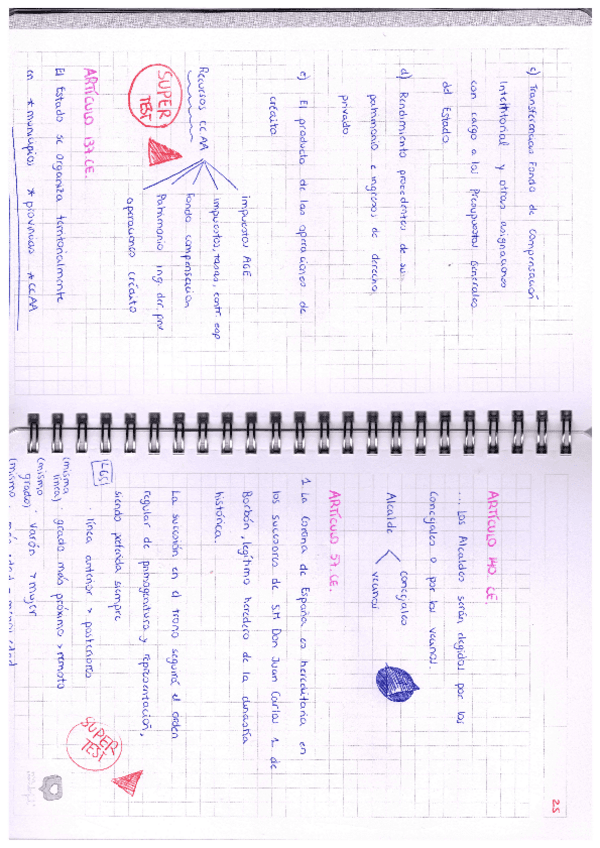 c) Transferencias Fondo de Compensación
Interterritorial y otras asignaciones
con cargo a los Presupuestos Generales
del Estado.
d) Rendimiento procedentes de su
patrimonio e ingresos de derecho
privado
e) El producto de las operaciones de
crédito
Recursos CCAA
impuestos AGE
impuestos, tasas, contr. esp
Fondo compensación
Patrimonio ing. der. priv
operaciones crédito
SUPER
TEST
ARTÍCULO 137 CE.
El Estado se organiza territorialmente
en * municipios * provincias * CCAA
25
ARTÍCULO 140 CE.
... Los Alcaldes serán elegidos por los
Concejales o por los vecinos.
Alcalde
concejales
vecinos
ARTÍCULO 57 CE.
1 La Corona de España es hereditaria en
los sucesores de S.M Don Juan Carlos 1 de
Borbón, legítimo heredero de la dinastía
histórica.
La sucesión en el trono seguirá el orden
regular de primogenitura y representación,
siendo preferida siempre
· línea anterior > posteriores
(misma
línea) · grado más próximo > remoto
(mismo
grado) · varón > mujer
(mismo
SUPER
TEST